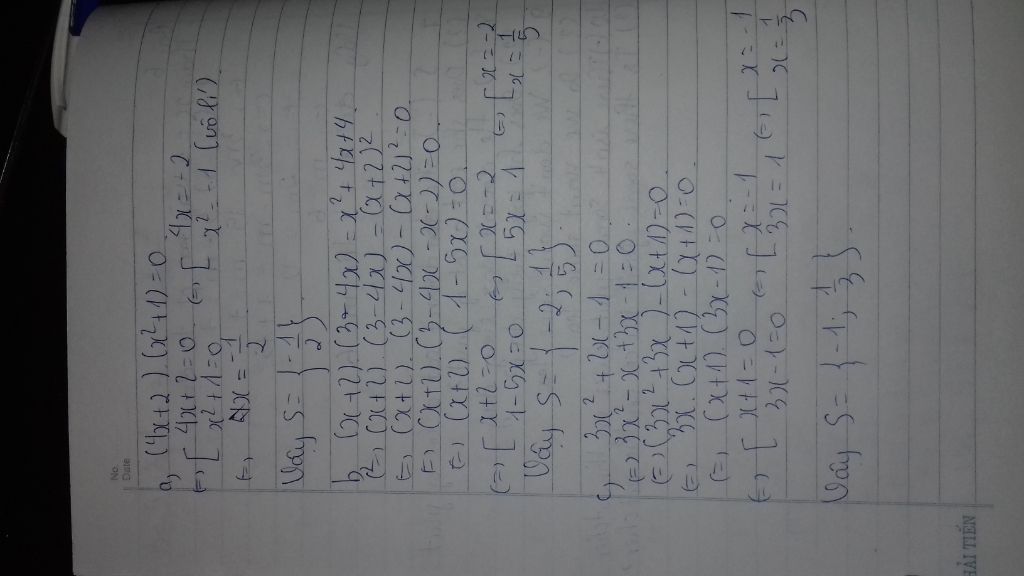 No.
Date
a, (4x+2)(x²+1)=0
(=) [ 4x+2=0 (=) [ 4x=-2
x²+1=0 x²=-1 (vô lí)
(=) x=-1/2
Vậy S={-1/2}
b, (x+2)(3-4x)=x²+4x+4
(=) (x+2).(3-4x)=(x+2)²
(=) (x+2).(3-4x)-(x+2)²=0
(=) (x+2).(3-4x-x-2)=0
(=) (x+2).(1-5x)=0
(=) [ x+2=0 (=) [ x=-2 (=) [ x=-2
1-5x=0 5x=1 x=1/5
Vậy S={-2; 1/5}.
c, 3x²+2x-1=0
(=) 3x²-x+3x-1=0
(=) (3x²+3x)-(x+1)=0
(=) 3x.(x+1)-(x+1)=0
(=) (x+1).(3x-1)=0
(=) [ x+1=0 (=) [ x=-1 (=) [ x=-1
3x-1=0 3x=1 x=1/3
Vậy S={-1; 1/3}.
HẢI TIẾN